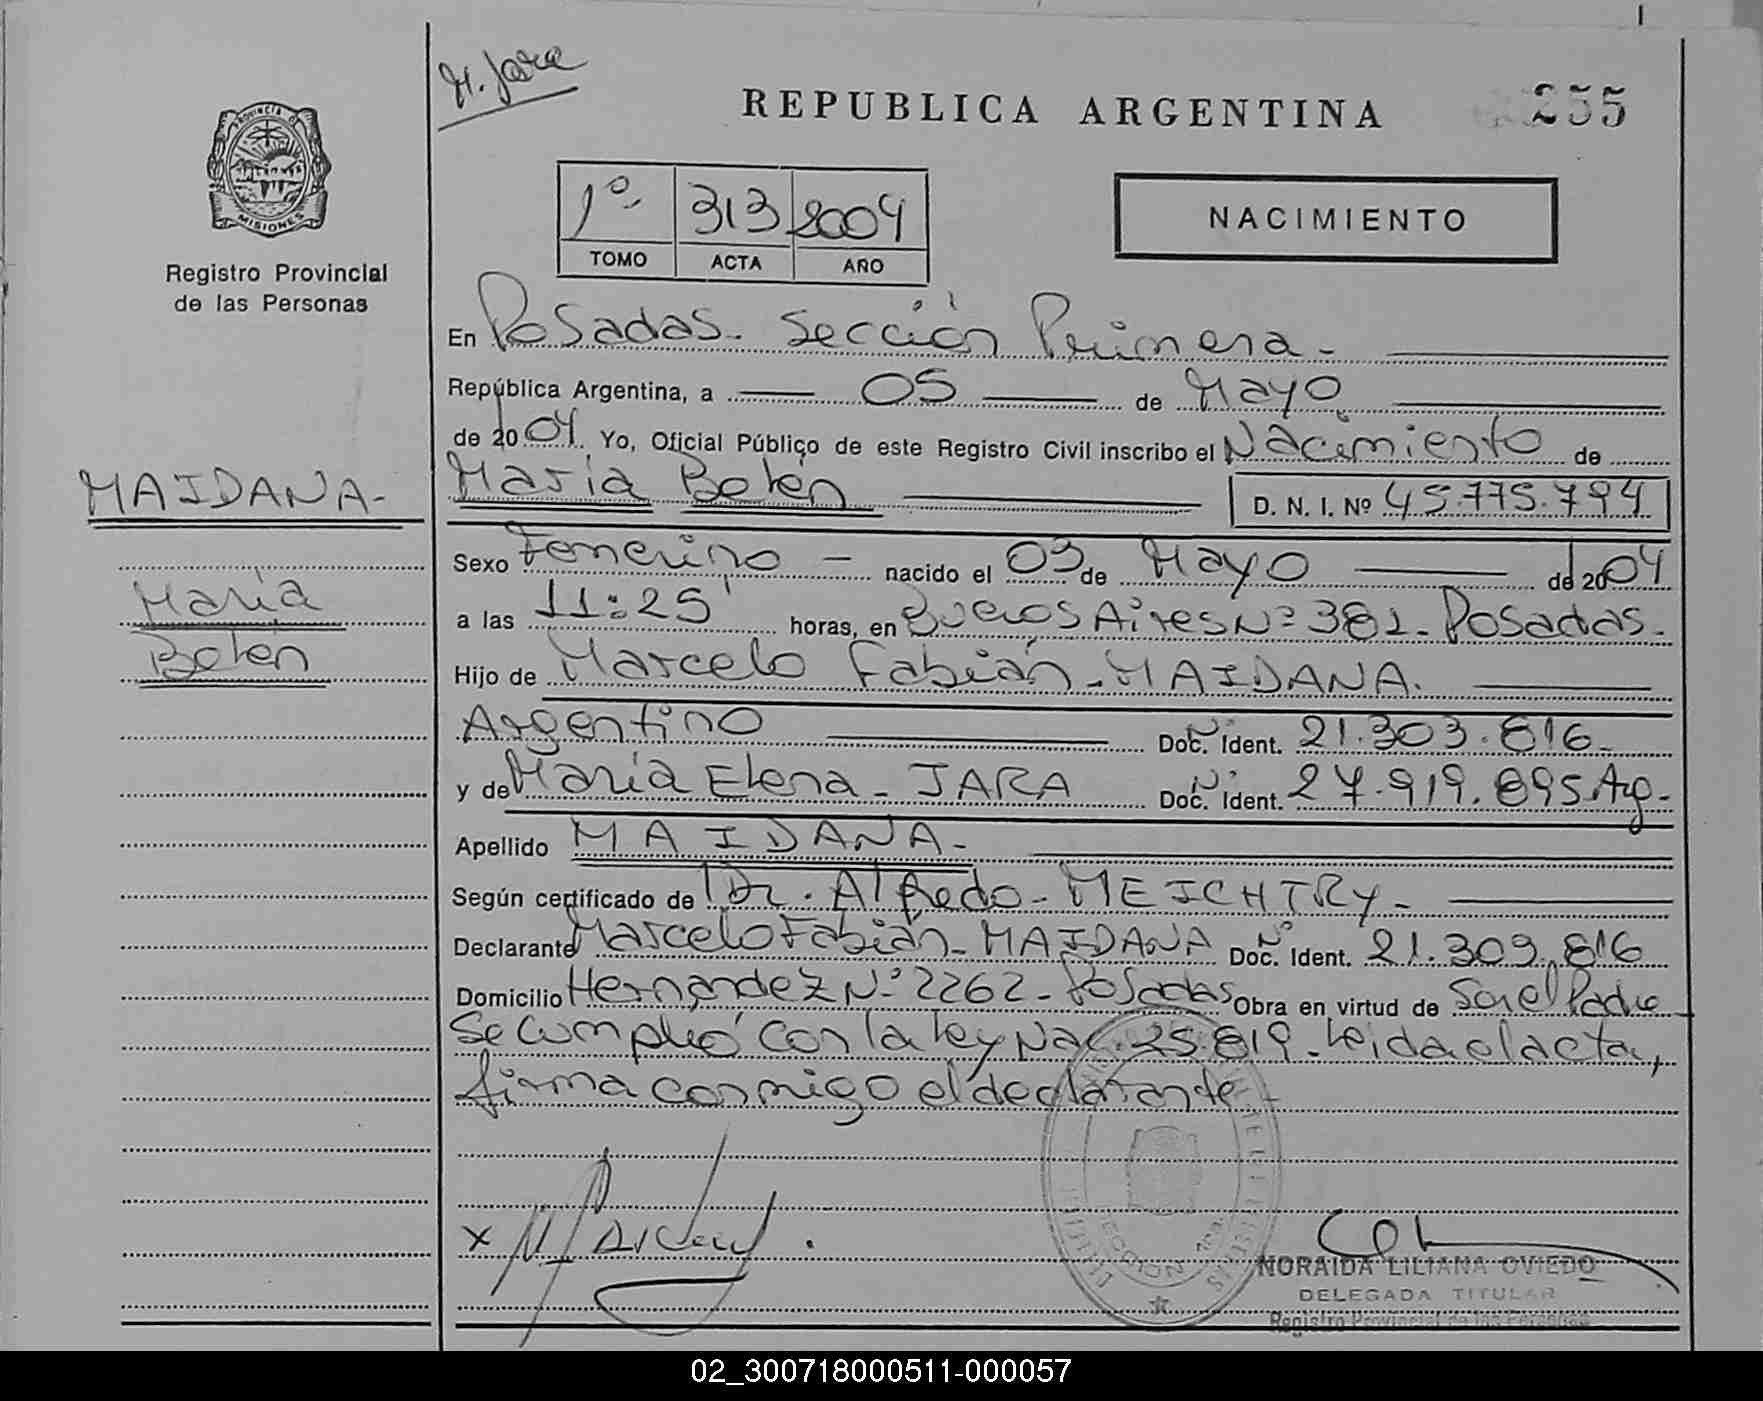 M. Jara
REPUBLICA ARGENTINA
255
PROVINCIA
MISIONES
Registro Provincial
de las Personas
1º 313 2004
TOMO ACTA AÑO
NACIMIENTO
En Posadas. Sección Primera -
República Argentina, a 05 de Mayo
de 2004. Yo, Oficial Público de este Registro Civil inscribo el Nacimiento de
MAIDANA-
María Belén
D. N. I. Nº 45.775.794
Sexo Femenino - nacido el 03 de Mayo de 2004
María
Belén
a las 11:25' horas, en Buenos Aires Nº 381- Posadas.
Hijo de Marcelo Fabián - MAIDANA.
Argentino Doc. Nº Ident. 21.303.816-
y de María Elena - JARA Doc. Nº Ident. 27.919.895 Arg-
Apellido MAIDANA-
Según certificado de Dr. Alfredo - MEICHTRY-
Declarante Marcelo Fabián - MAIDANA Doc. Nº Ident. 21.303.816
Domicilio Hernández Nº 2262 - Posadas Obra en virtud de Ser el Padre
Se cumplió con la ley Nac. 25.819. Leída el acta,
firma conmigo el declarante
x
NORAIDA LILIANA OVIEDO
DELEGADA TITULAR
Registro Provincial de las Personas
02_300718000511-000057